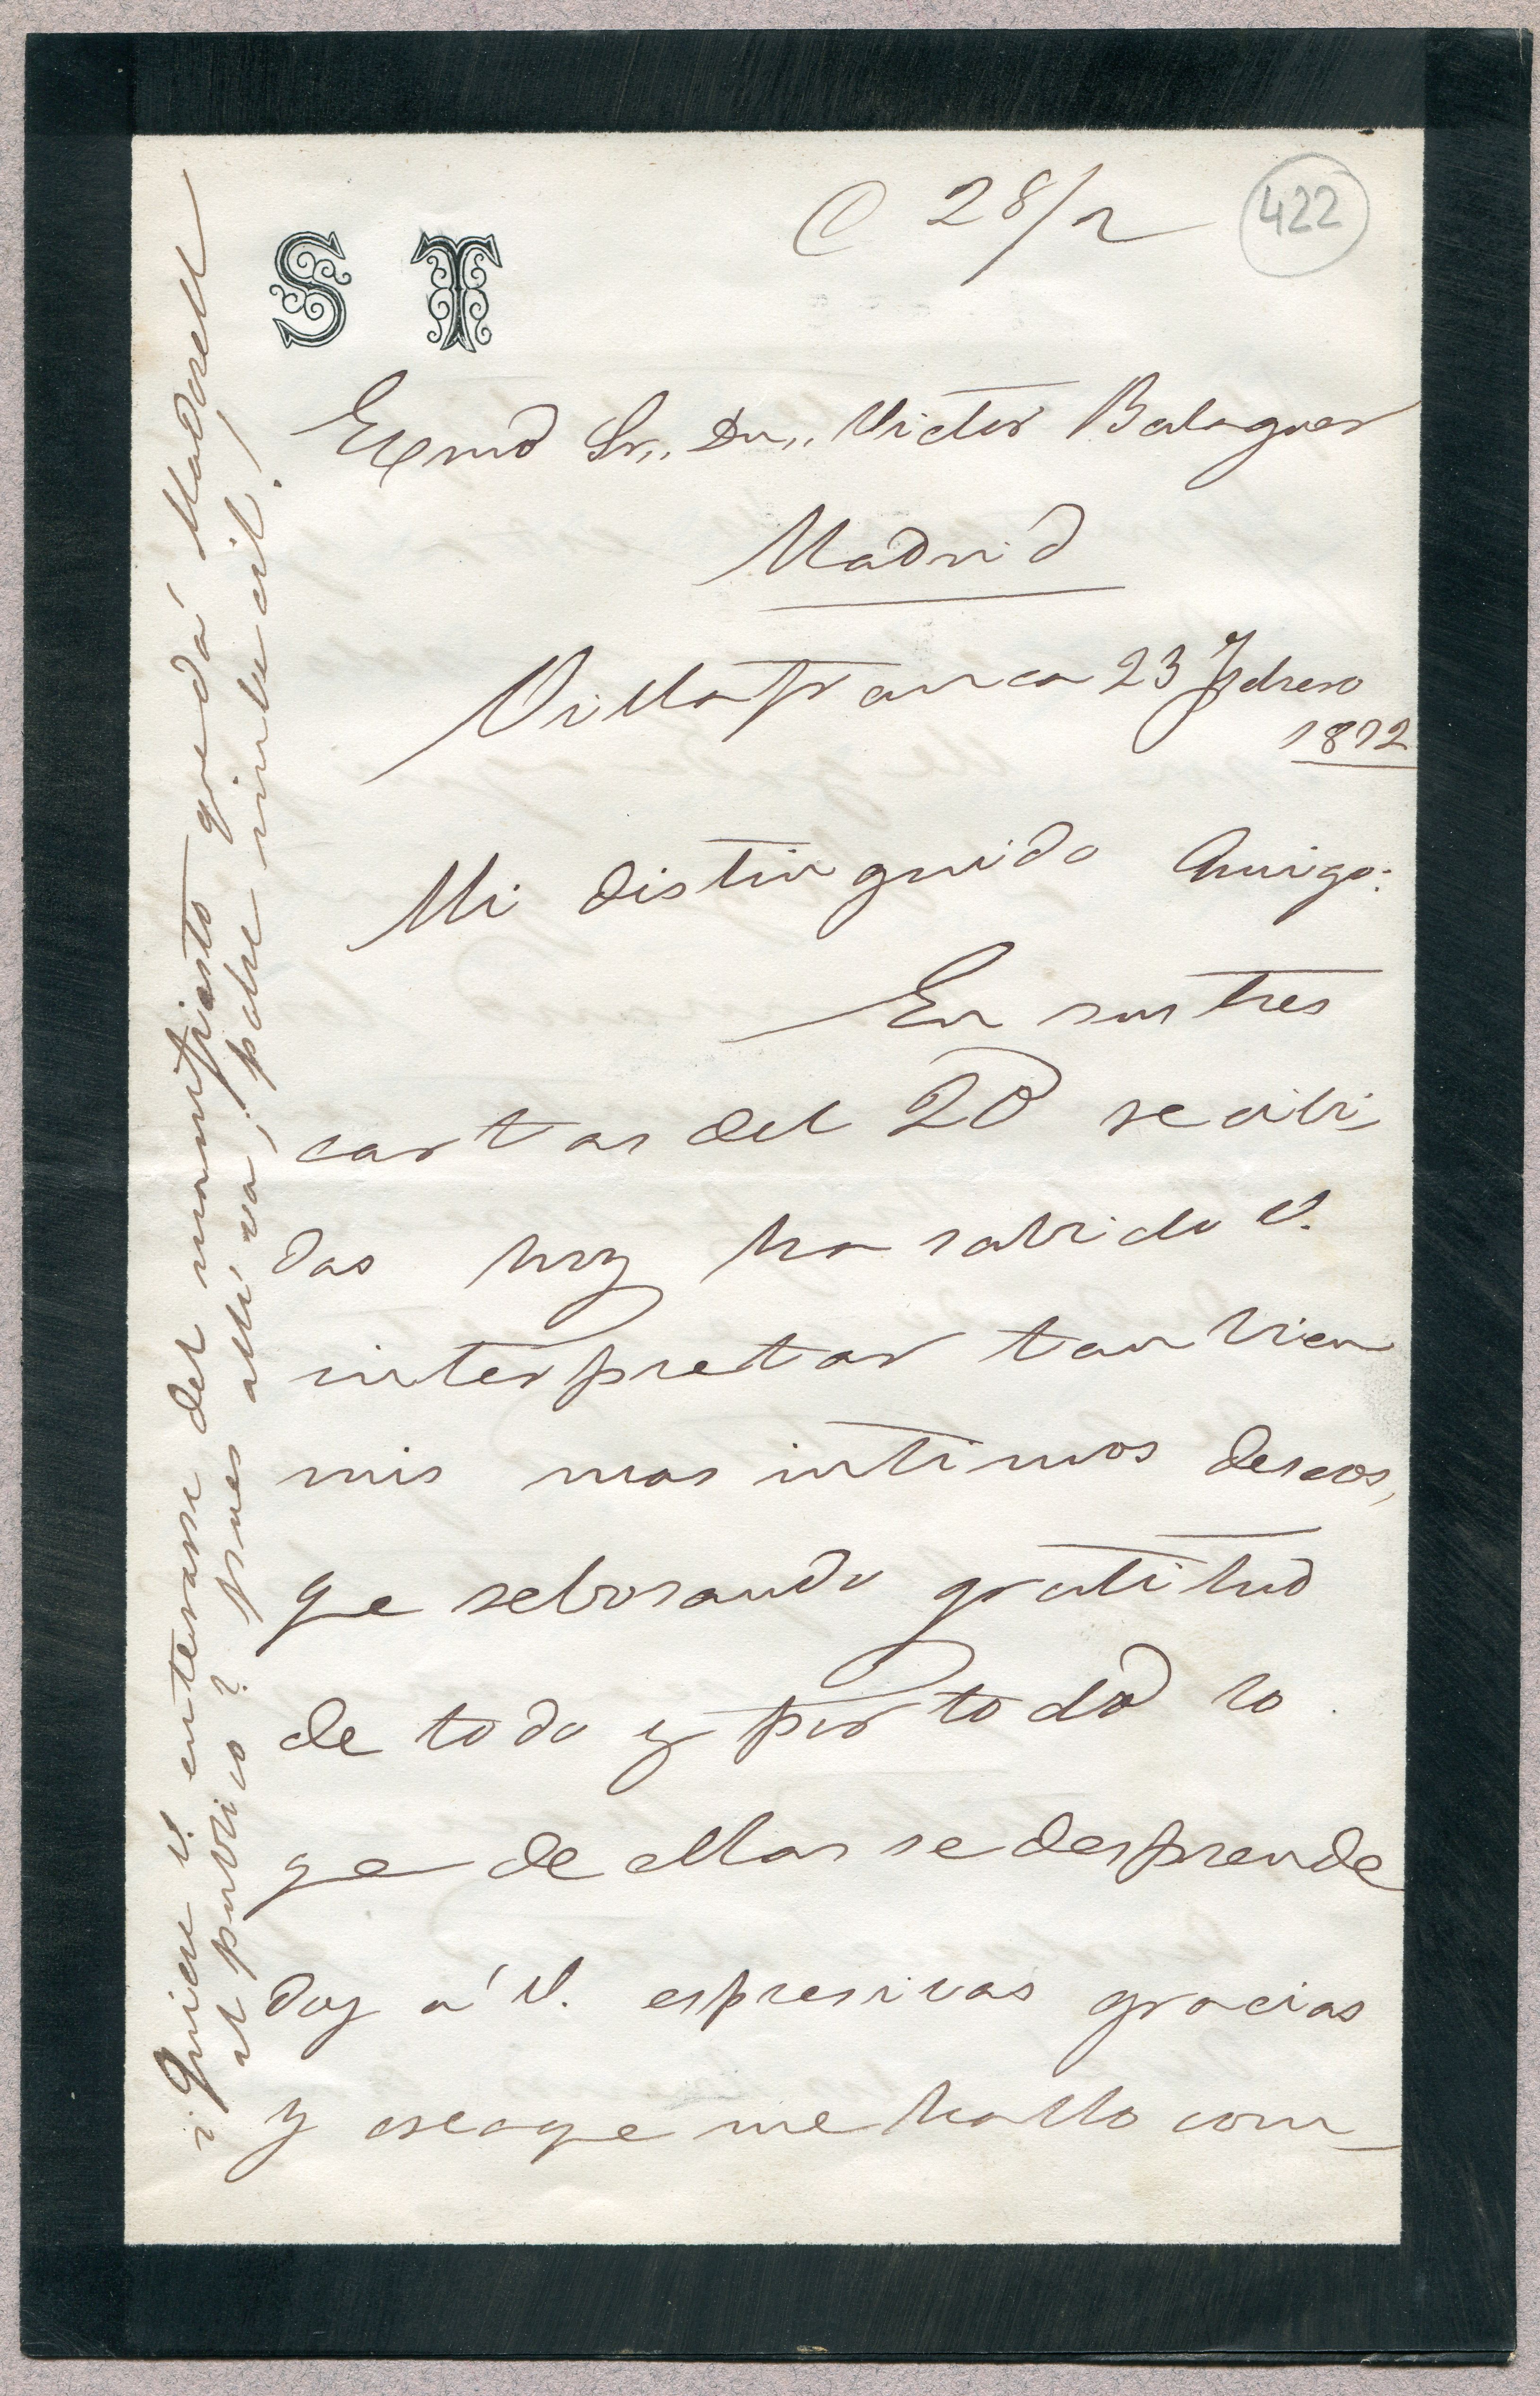 C 28/2
422
S T
Exmo Sr,, Dn,, Victor Balaguer
Madrid
Villafranca 23 Febrero
1872
Mi distinguido Amigo:
En sus tres
cartas del 20 recibi,
das hoy ha sabido V.
interpretar tan bien
mis mas intimos deseos,
qe rebosando gratitud
de todo y por todo lo
qe de ellas se desprende
doy a' V. espresivas gracias
y crea qe me hallo com_
¿Quiere V. enterarse del manifiesto que dá Maldorell
al publico? pues allá va, ¡pobre imbecil!